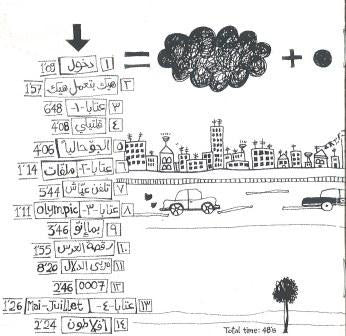 ١ دخول 1'09
٢ هيك بتعمل هيك 1'57
٣ عتابا -١- 6'48
٤ قلتيلي 4'08
٥ 4'06
٦ عتابا -٢- ملفات 1'14
٧ تلفن عيّاش 5'44
٨ عتابا -٣- Olympic 1'11
٩ بما إنّو 3'46
١٠ رقصة العرس 1'55
١١ مربى الدلال 8'20
١٢ 0007 2'46
١٣ عتابا -٤- Mai-Juillet 1'26
١٤ أفلاطون 2'24
Total time: 48'6